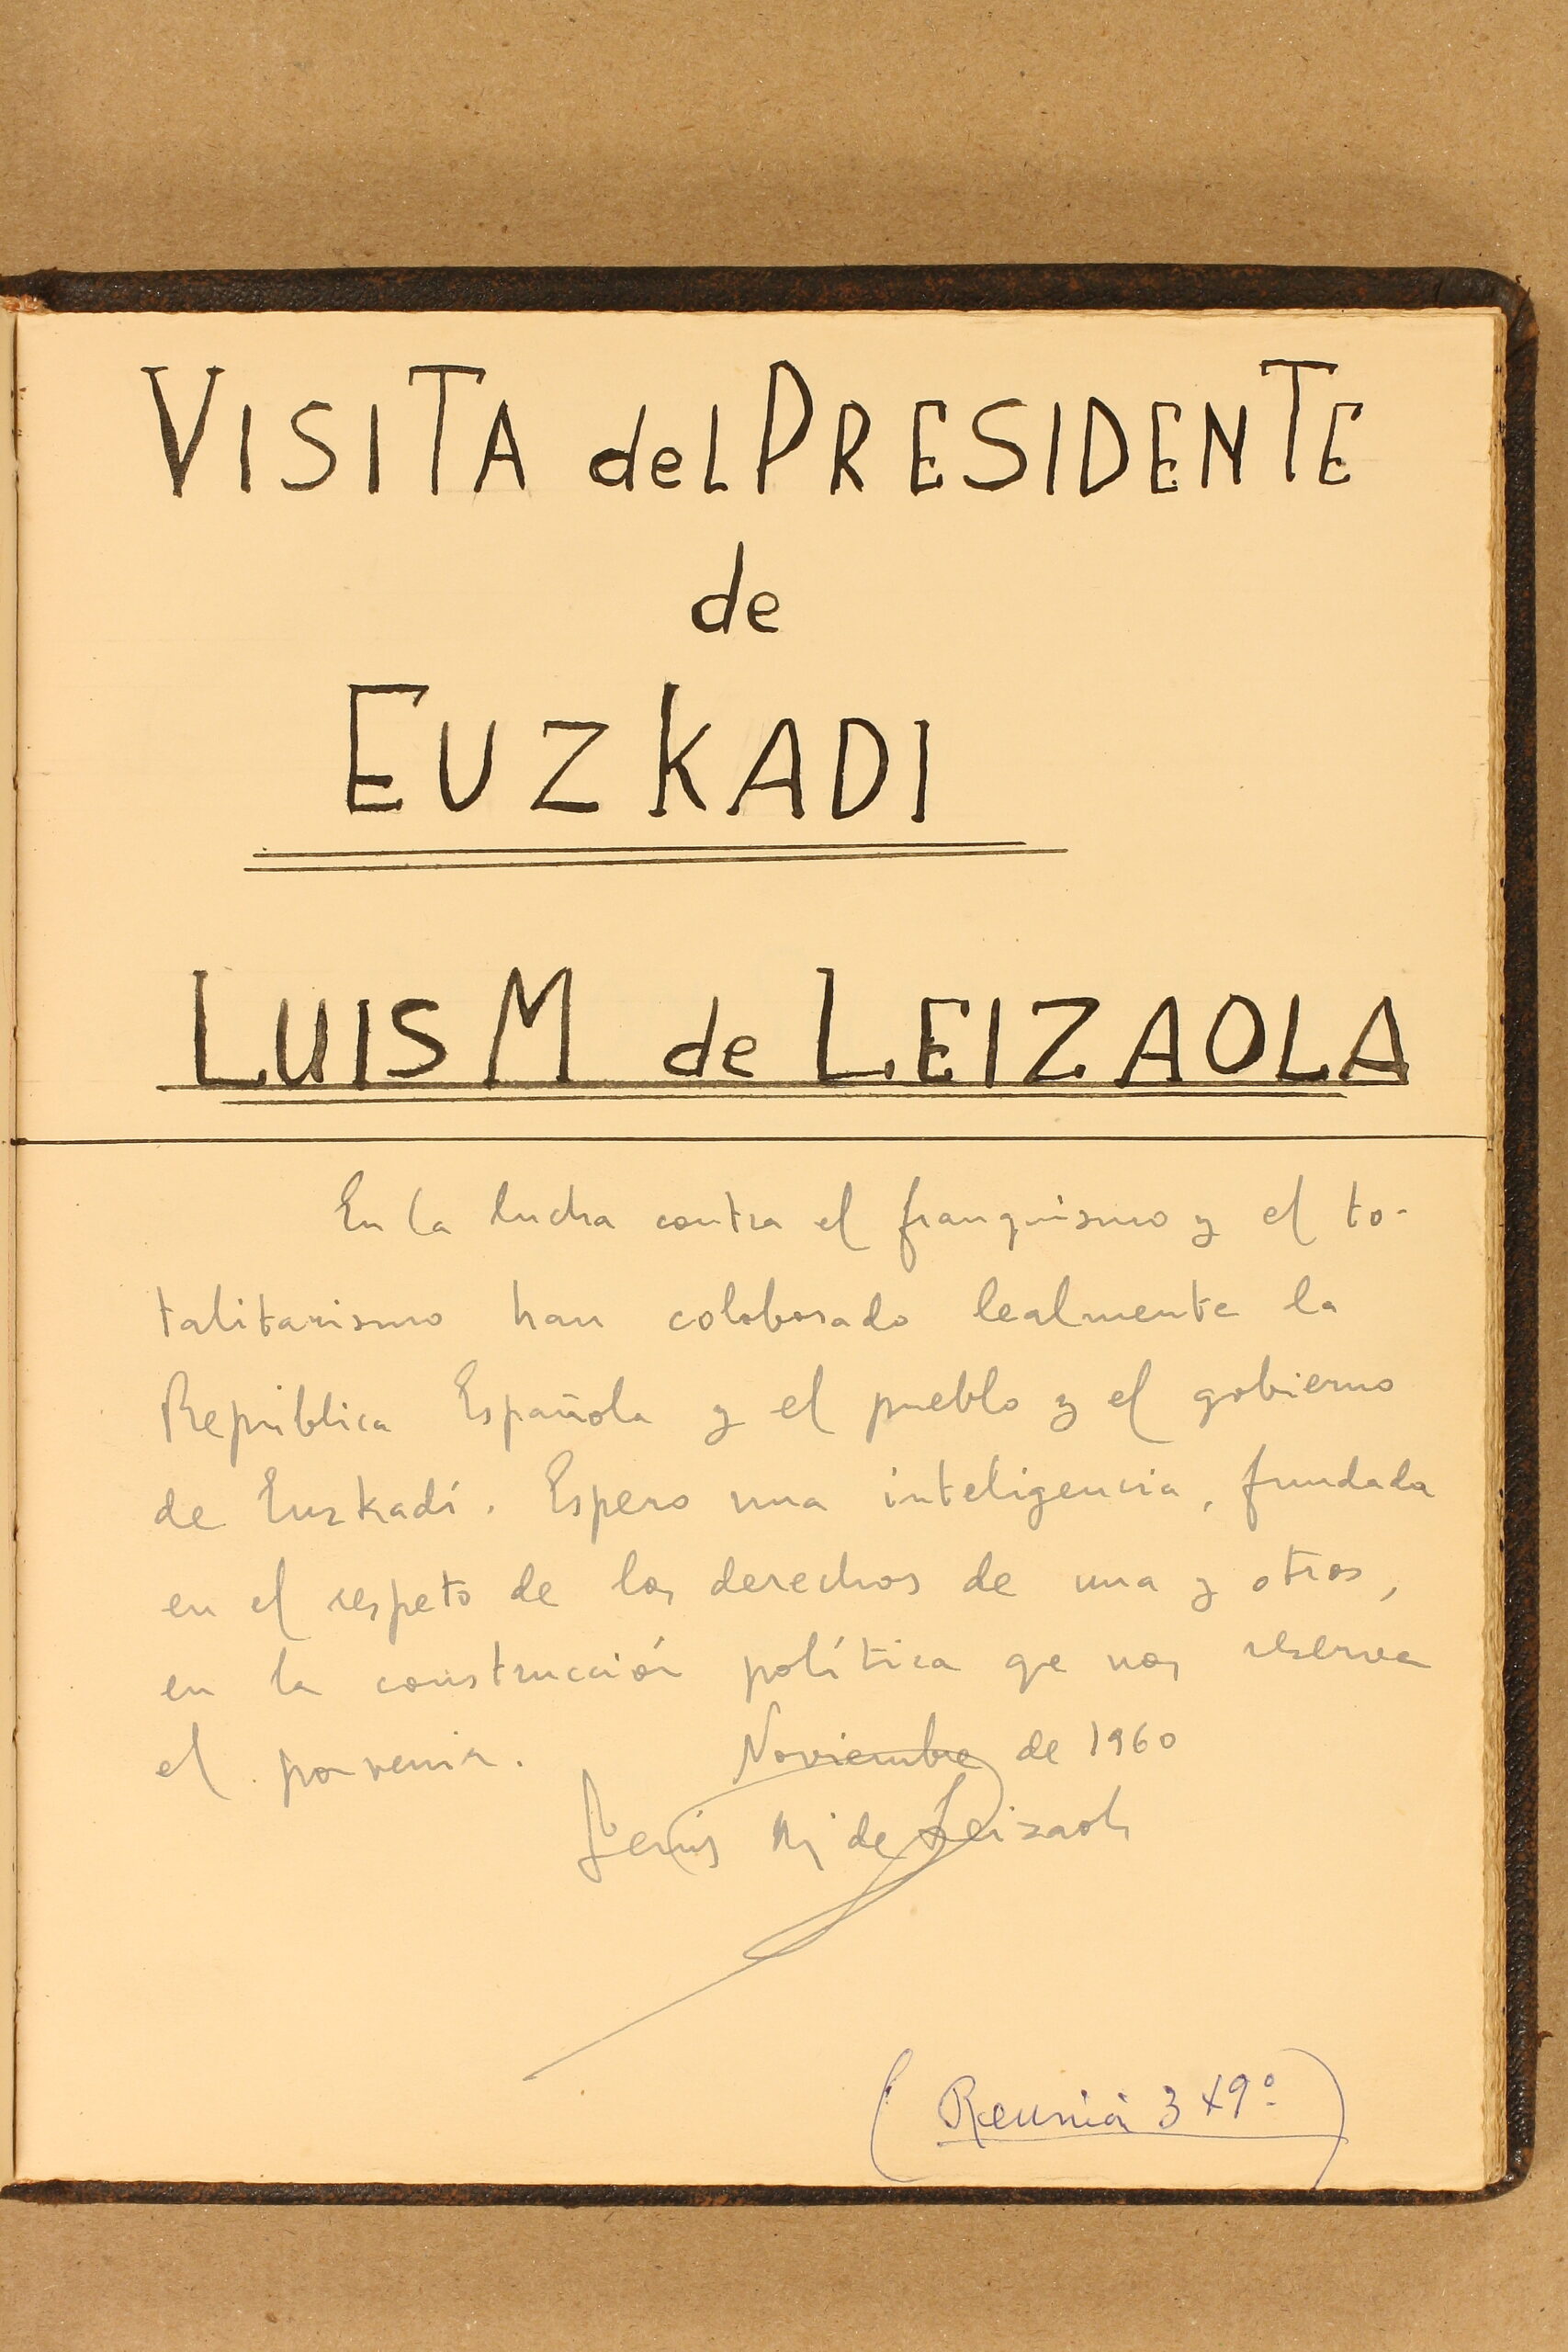 VISITA del PRESIDENTE
de
EUZKADI
LUIS M de LEIZAOLA
En la lucha contra el franquismo y el to-
talitarismo han colaborado lealmente la
República Española y el pueblo y el gobierno
de Euzkadi. Espero una inteligencia, fundada
en el respeto de los derechos de una y otros,
en la construcción política qe nos reserva
el porvenir. Noviembre de 1960
Jesús Mª de Leizaola
(Reunión 349º)